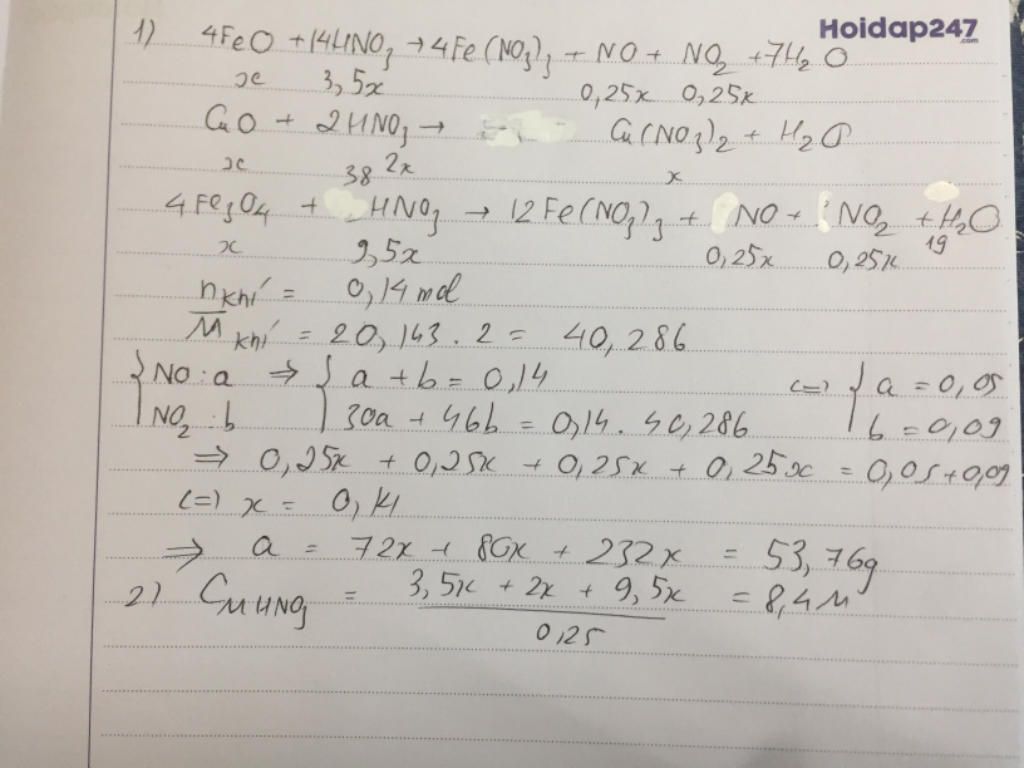 Hoidap247
.com
1) 4FeO + 14HNO3 → 4Fe(NO3)3 + NO + NO2 + 7H2O
x 3,5x 0,25x 0,25x
CuO + 2HNO3 → Cu(NO3)2 + H2O
x 2x x
38
4Fe3O4 + HNO3 → 12Fe(NO3)3 + NO + NO2 + H2O
x 9,5x 0,25x 0,25x 19
nkhí = 0,14 mol
Mkhí = 20,143 . 2 = 40,286
{ NO : a ⇒ { a + b = 0,14 (=) { a = 0,05
NO2 : b 30a + 46b = 0,14 . 40,286 b = 0,09
⇒ 0,25x + 0,25x + 0,25x + 0,25x = 0,05 + 0,09
(=) x = 0,14
⇒ a = 72x + 80x + 232x = 53,76g
2) CM HNO3 = 3,5x + 2x + 9,5x = 8,4M
0,25